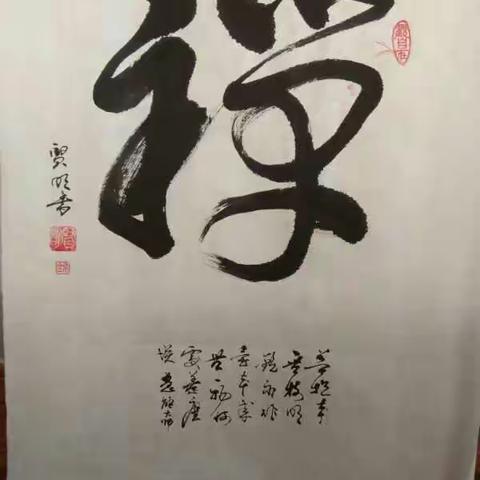 禅
菩提本
无树明
镜亦非
台本来
无一物何
处惹尘
埃 慧能大师
明书